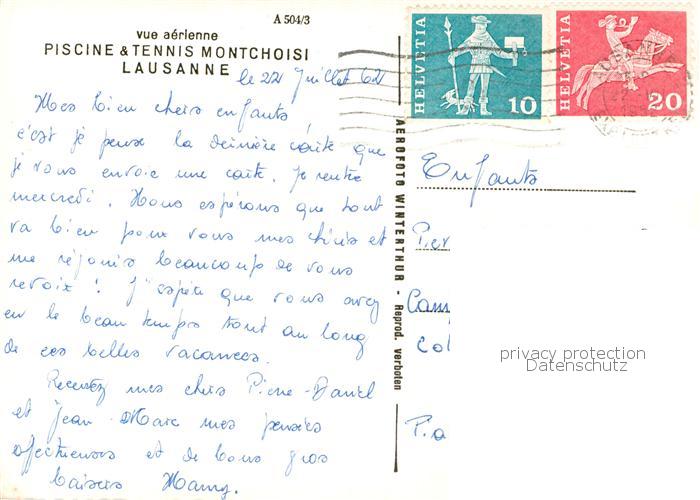 A 504/3
vue aérienne
PISCINE & TENNIS MONTCHOISI
LAUSANNE
le 22 Juillet 62
Mes bien chers enfants,
c'est je pense la dernière carte que
je vous envoie une carte. Je rentre
mercredi. Nous espérons que tout
va bien pour vous mes chéris et
me réjouis beaucoup de vous
revoir ! J'espère que vous avez
eu le beau temps tout au long
de ces belles vacances.
Recevez mes chers Pierre-Daniel
et Jean-Marc mes pensées
affectueuses et de bons gros
baisers Mamy.
AEROFOTO WINTERTHUR - Reprod. verboten
HELVETIA
10
HELVETIA
20
Enfants
Pier
Cam
Col
P.a
privacy protection
Datenschutz